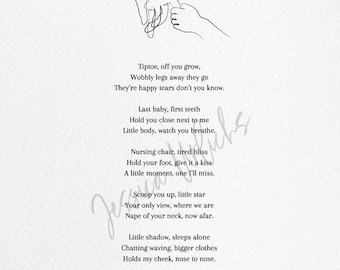 Tiptoe, off you grow,
Wobbly legs away they go
They're happy tears don't you know.
Last baby, first teeth
Hold you close next to me
Little body, watch you breathe.
Nursing chair, tired bliss
Hold your foot, give it a kiss
A little moment, one I'll miss.
Scoop you up, little star
Your only view, where we are
Nape of your neck, now afar.
Little shadow, sleeps alone
Chatting waving, bigger clothes
Holds my cheek, nose to nose.
Jessica